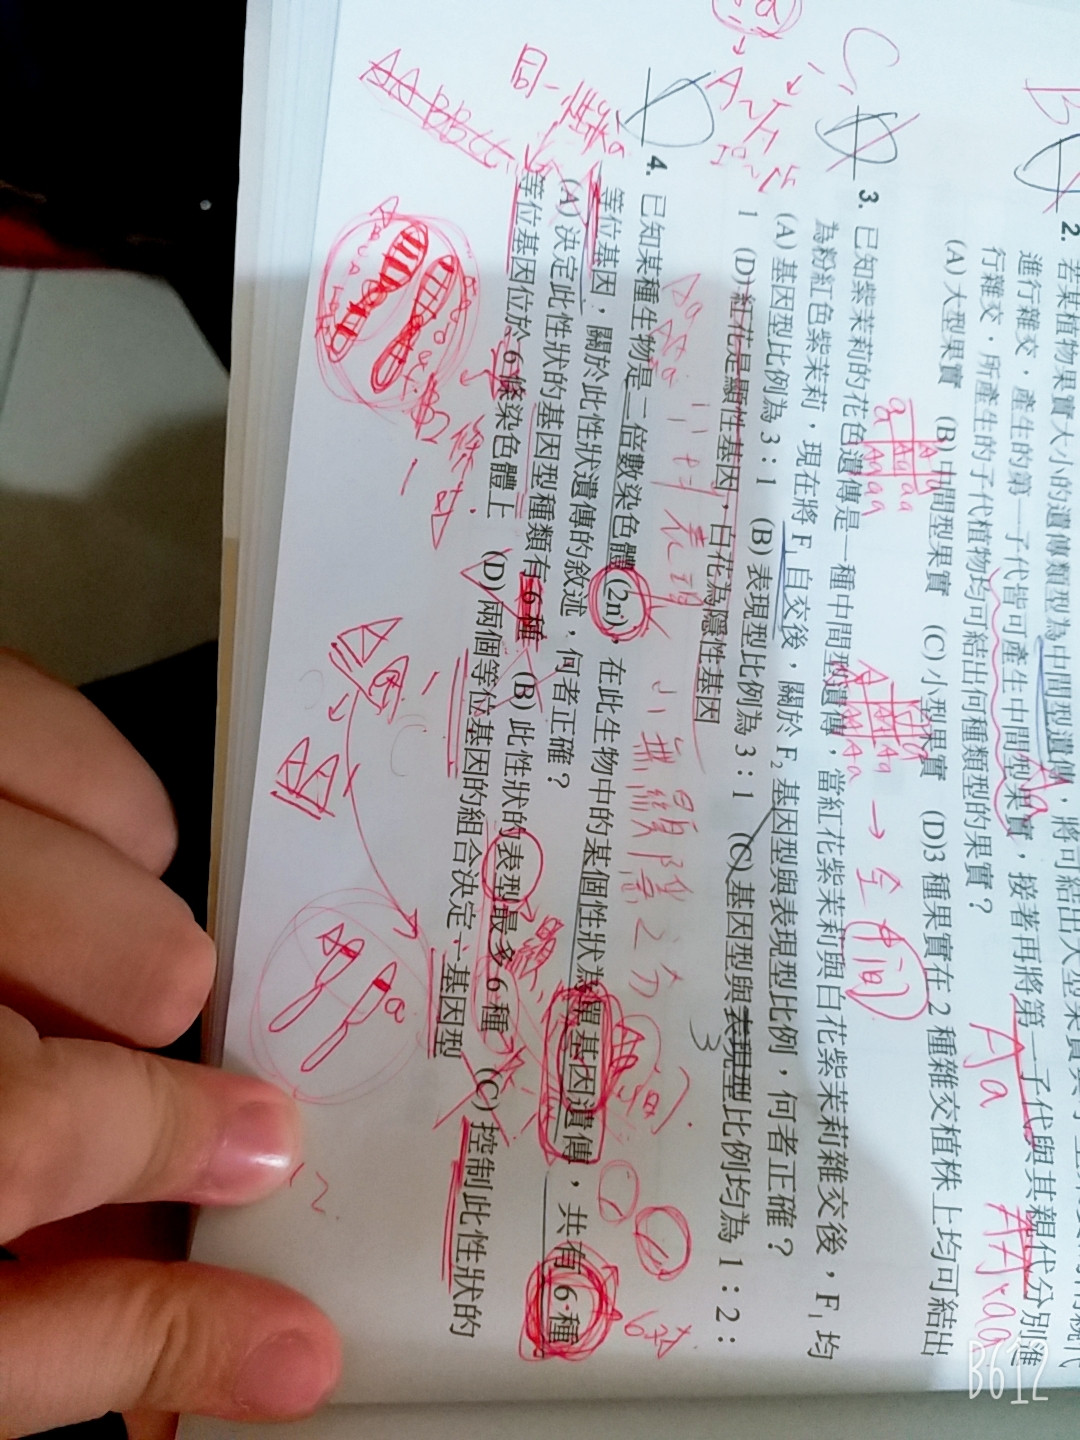 2. 若某植物果實大小的遺傳類型為中間型遺傳，將可結出大型果實
進行雜交，產生的第一子代皆可產生中間型果實，接著再將第一子代與其親代分別進
行雜交，所產生的子代植物均可結出何種類型的果實？
(A)大型果實 (B)中間型果實 (C)小型果實 (D)3種果實在2種雜交植株上均可結出
3. 已知紫茉莉的花色遺傳是一種中間型遺傳，當紅花紫茉莉與白花紫茉莉雜交後，F1均
為粉紅色紫茉莉，現在將F1自交後，關於F2基因型與表現型比例，何者正確？
(A)基因型比例為3：1 (B)表現型比例為3：1 (C)基因型與表現型比例均為1：2：
1 (D)紅花是顯性基因，白花為隱性基因
4. 已知某種生物是二倍數染色體(2n)，在此生物中的某個性狀為單基因遺傳，共有6種
等位基因，關於此性狀遺傳的敘述，何者正確？
(A)決定此性狀的基因型種類有6種 (B)此性狀的表型最多6種 (C)控制此性狀的
等位基因位於6條染色體上 (D)兩個等位基因的組合決定一基因型
B
C
Aa
AA×aa
→全中間
小時表現
無顯隱之分
3
6對
同一性狀
AABBCC
2條
1對
AA
A
a
12
B612